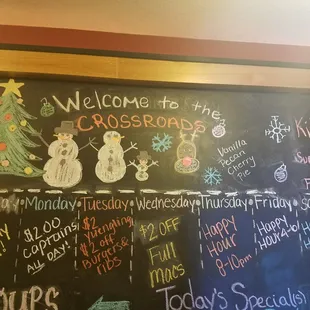 Welcome to the
CROSSROADS
Vanilla
Pecan
Cherry
Pie
Monday
Tuesday
Wednesday
Thursday
Friday
$2.00
Captains
ALL DAY!
$2
Yuengling
$2 off
Burgers &
Ribs
$2 OFF
Full
Macs
Happy
Hour
8-10pm
Happy
Hour 4-6
OUPS
Today's Special(s)